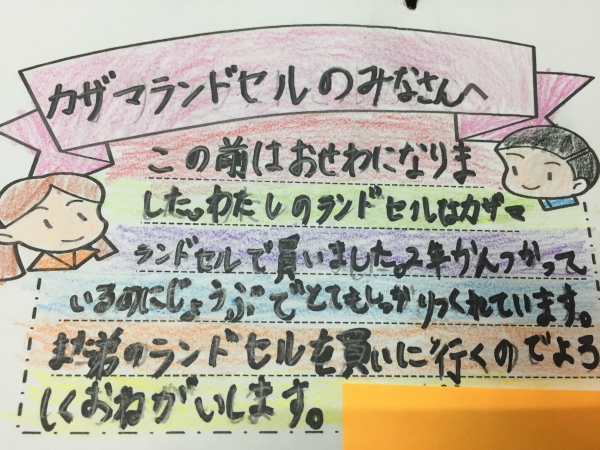 カザマランドセルのみなさんへ
この前はおせわになりま
した。わたしのランドセルはカザマ
ランドセルで買いました。2年かんつかって
いるのにじょうぶでとてもしっかりつくれています。
また弟のランドセルを買いに行くのでよろ
しくおねがいします。